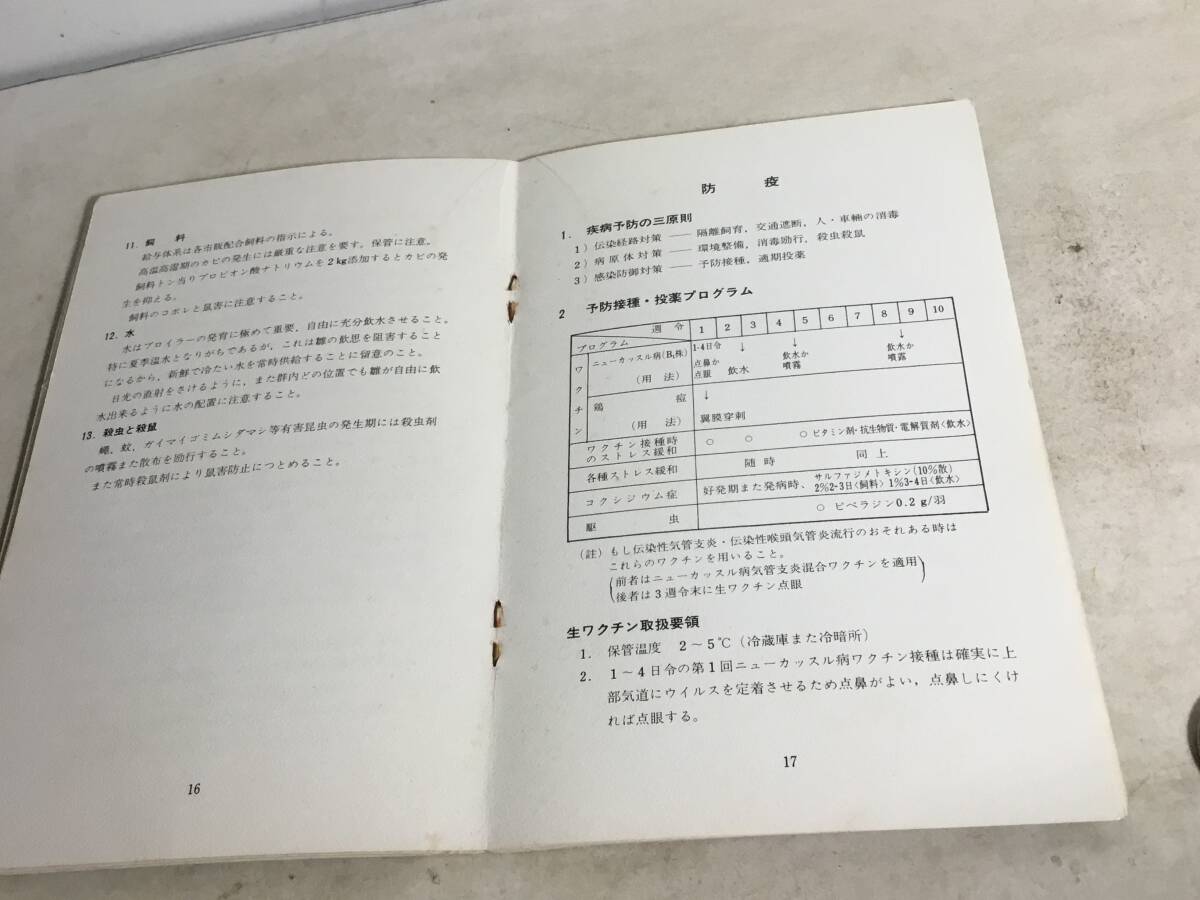 11. 飼　料
給与体系は各市販配合飼料の指示による。
高温高湿期のカビの発生には厳重な注意を要す。保管に注意。
飼料トン当りプロピオン酸ナトリウムを2kg添加するとカビの発
生を抑える。
飼料のコボレと鼠害に注意すること。
12. 水
水はブロイラーの発育に極めて重要，自由に充分飲水させること。
特に夏季温水となりがちであるが，これは雛の飲思を阻害すること
になるから，新鮮で冷たい水を常時供給することに留意のこと。
日光の直射をさけるように，また群内どの位置でも雛が自由に飲
水出来るように水の配置に注意すること。
13. 殺虫と殺鼠
蠅，蚊，ガイマイゴミムシダマシ等有害昆虫の発生期には殺虫剤
の噴霧また散布を励行すること。
また常時殺鼠剤により鼠害防止につとめること。
16
防　疫
1. 疾病予防の三原則
1）伝染経路対策 ―― 隔離飼育，交通遮断，人・車輛の消毒
2）病原体対策 ―― 環境整備，消毒励行，殺虫殺鼠
3）感染防御対策 ―― 予防接種，適期投薬
2 予防接種・投薬プログラム
プログラム 週令 1 2 3 4 5 6 7 8 9 10
ワクチン
ニューカッスル病(B₁株) 1-4日令 ↓ ↓ ↓
（用法） 点鼻か点眼 飲水 飲水か噴霧 飲水か噴霧
鶏痘 ↓
（用法） 翼膜穿刺
ワクチン接種時のストレス緩和 ○ ○ ○ ビタミン剤・抗生物質・電解質剤〈飲水〉
各種ストレス緩和 随時 同上
コクシジウム症 好発期また発病時、サルファジメトキシン(10%散) 2%2-3日〈飼料〉1%3-4日〈飲水〉
駆虫 ○ ピペラジン0.2 g/羽
（註）もし伝染性気管支炎・伝染性喉頭気管炎流行のおそれある時は
これらのワクチンを用いること。
(前者はニューカッスル病気管支炎混合ワクチンを適用
後者は3週令末に生ワクチン点眼)
生ワクチン取扱要領
1. 保管温度　2～5℃（冷蔵庫また冷暗所）
2. 1～4日令の第1回ニューカッスル病ワクチン接種は確実に上
部気道にウイルスを定着させるため点鼻がよい，点鼻しにくけ
れば点眼する。
17